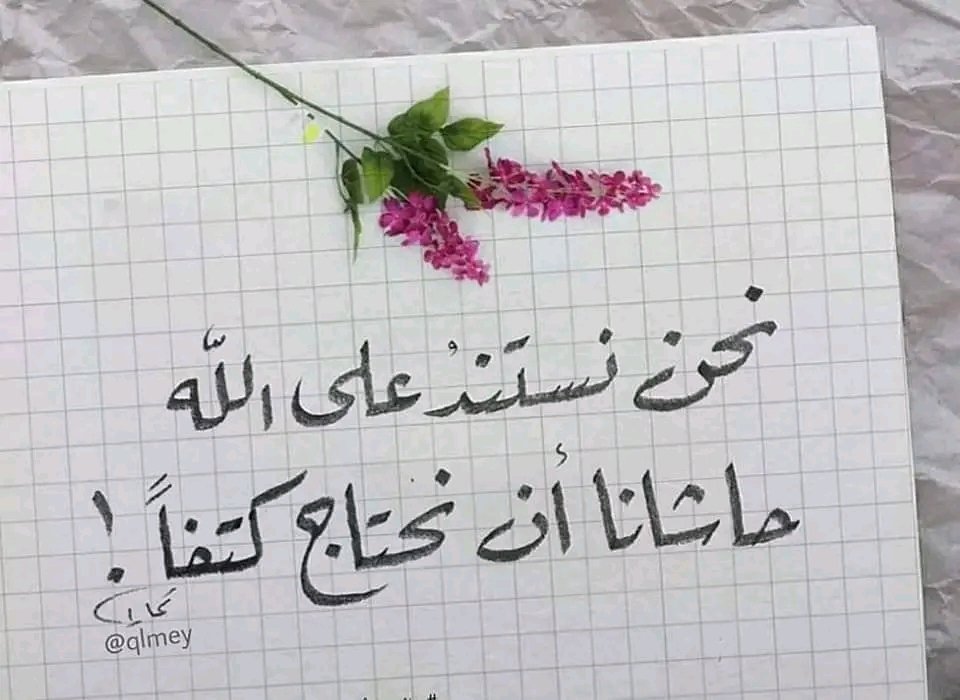 نحن نستندُ على اللّه
حاشانا أن نحتاج كتفاً !
@qlmey